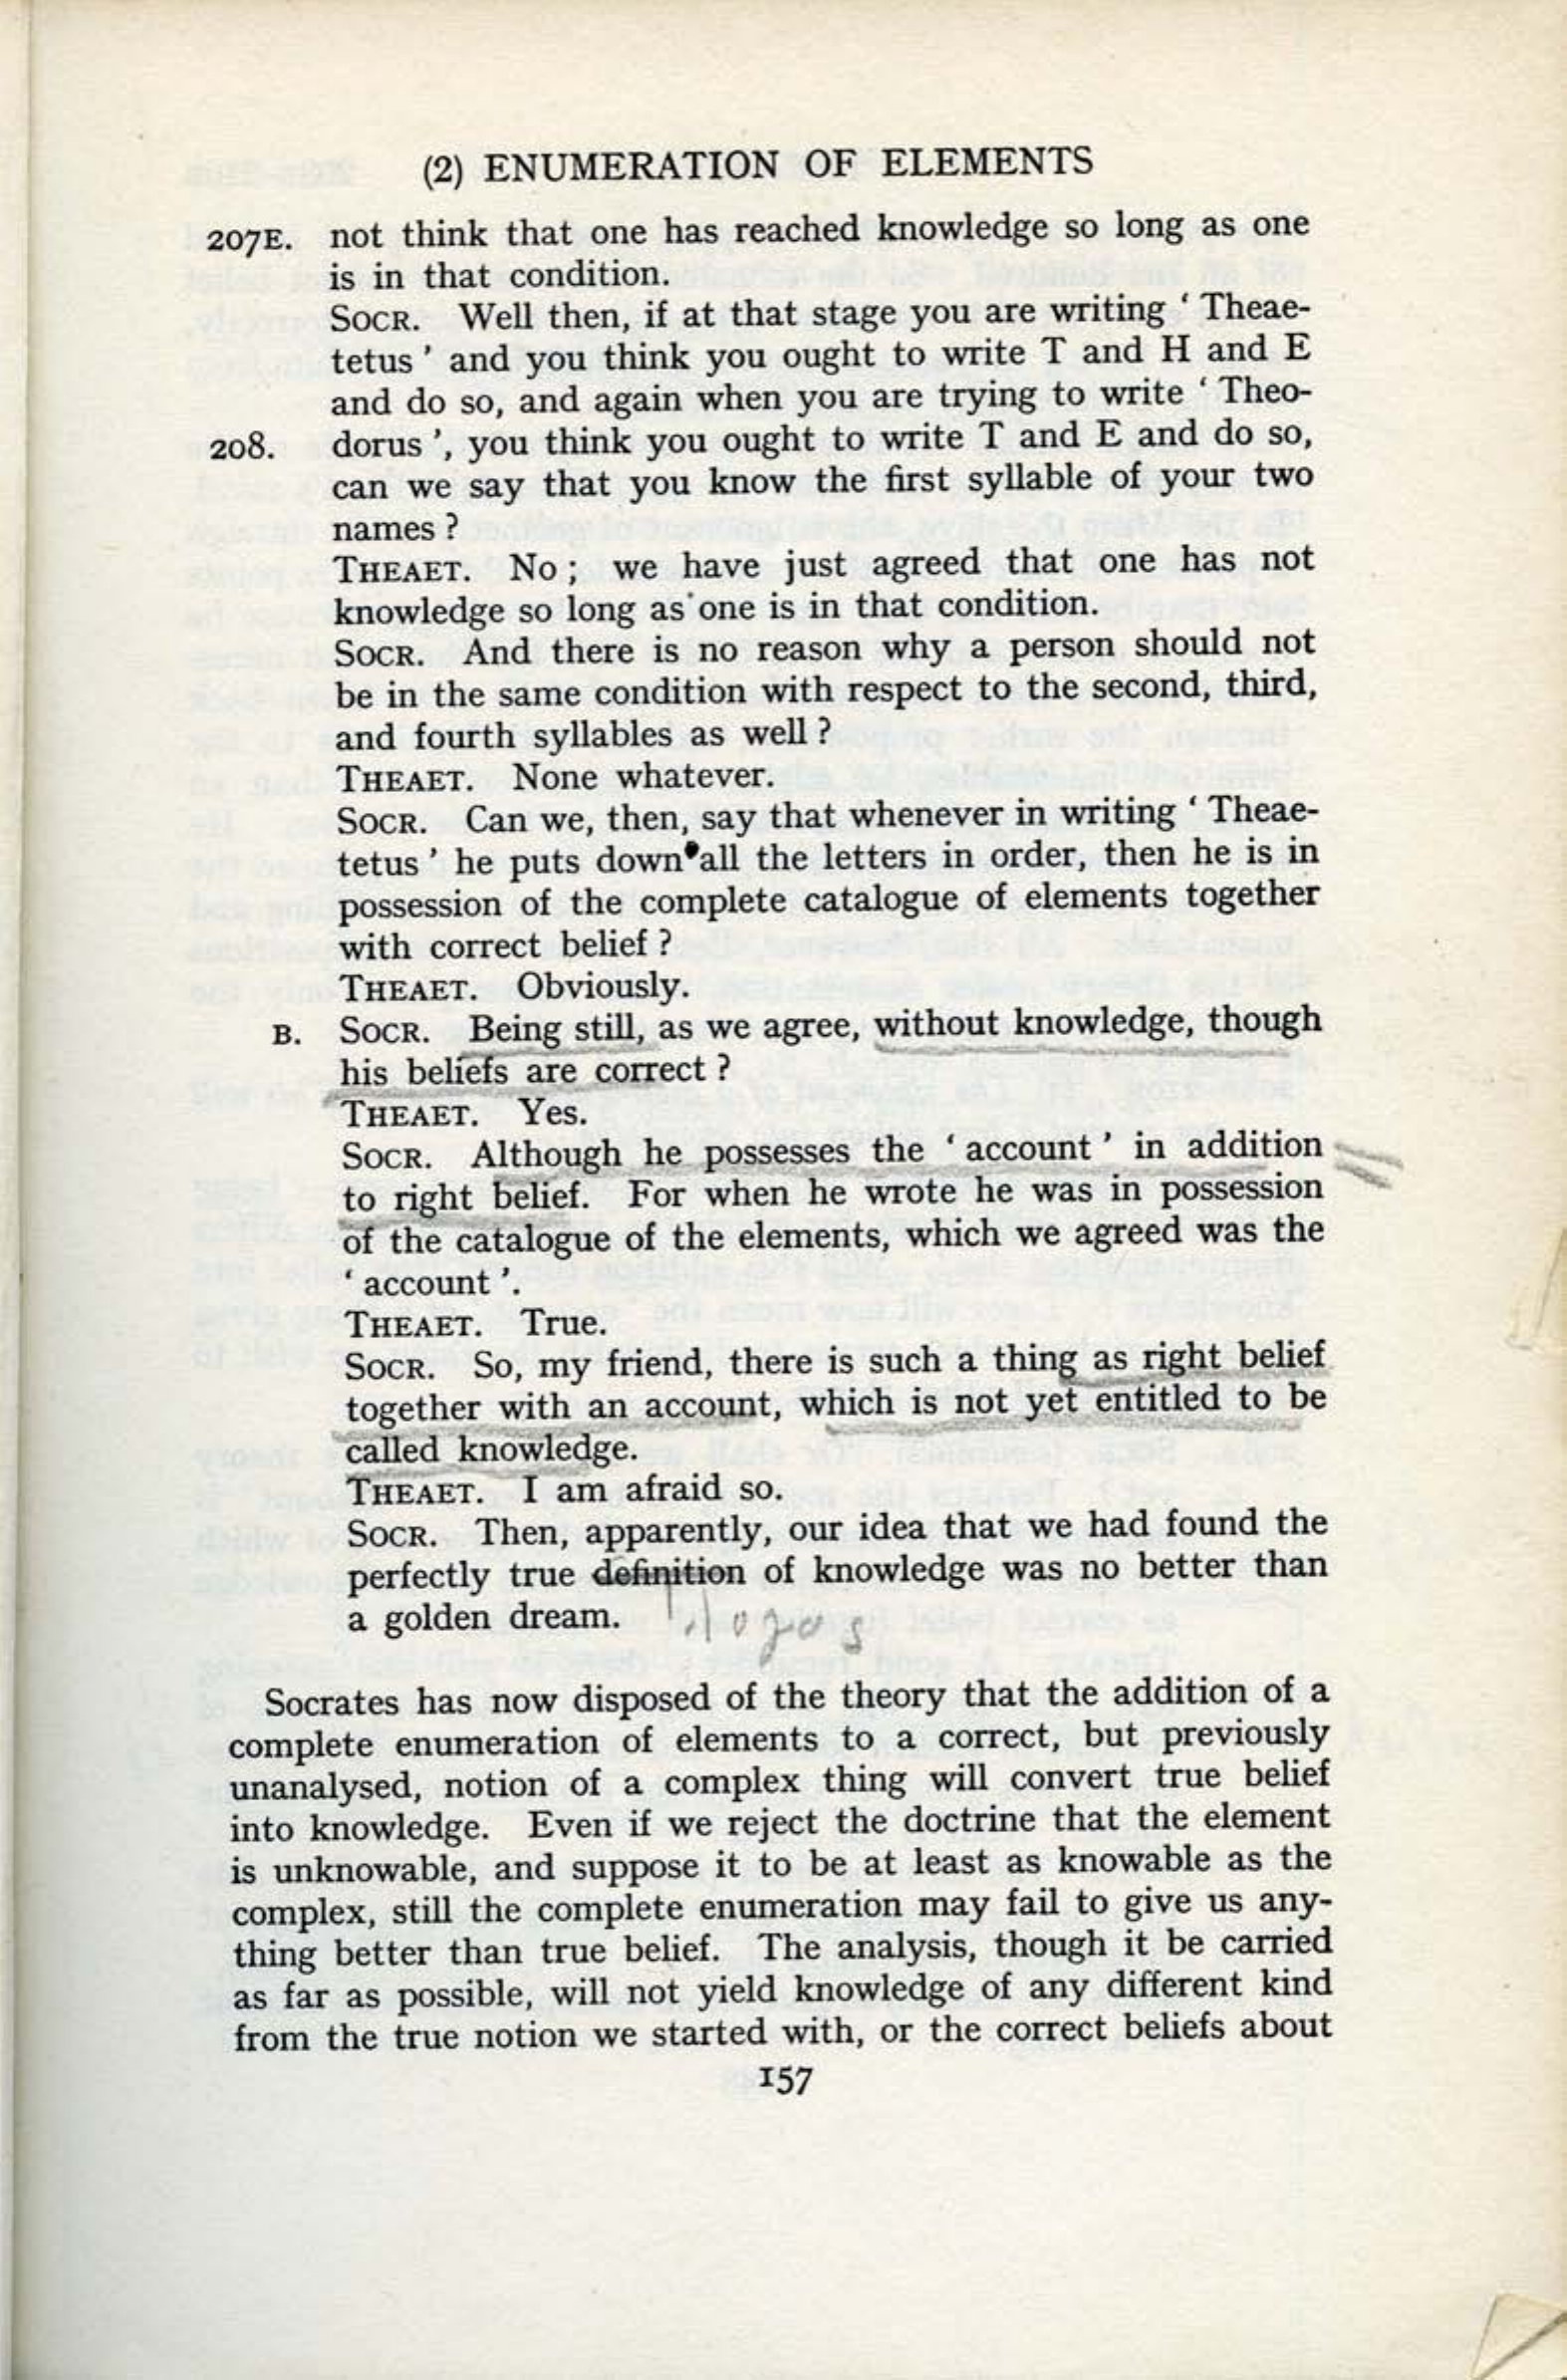 (2) ENUMERATION OF ELEMENTS
207E. not think that one has reached knowledge so long as one
is in that condition.
SOCR. Well then, if at that stage you are writing ‘ Theae-
tetus ’ and you think you ought to write T and H and E
and do so, and again when you are trying to write ‘ Theo-
208. dorus ’, you think you ought to write T and E and do so,
can we say that you know the first syllable of your two
names ?
THEAET. No ; we have just agreed that one has not
knowledge so long as one is in that condition.
SOCR. And there is no reason why a person should not
be in the same condition with respect to the second, third,
and fourth syllables as well ?
THEAET. None whatever.
SOCR. Can we, then, say that whenever in writing ‘ Theae-
tetus ’ he puts down all the letters in order, then he is in
possession of the complete catalogue of elements together
with correct belief ?
THEAET. Obviously.
B. SOCR. Being still, as we agree, without knowledge, though
his beliefs are correct ?
THEAET. Yes.
SOCR. Although he possesses the ‘ account ’ in addition
to right belief. For when he wrote he was in possession
of the catalogue of the elements, which we agreed was the
‘ account ’.
THEAET. True.
SOCR. So, my friend, there is such a thing as right belief
together with an account, which is not yet entitled to be
called knowledge.
THEAET. I am afraid so.
SOCR. Then, apparently, our idea that we had found the
perfectly true definition of knowledge was no better than
a golden dream.
logos
Socrates has now disposed of the theory that the addition of a
complete enumeration of elements to a correct, but previously
unanalysed, notion of a complex thing will convert true belief
into knowledge. Even if we reject the doctrine that the element
is unknowable, and suppose it to be at least as knowable as the
complex, still the complete enumeration may fail to give us any-
thing better than true belief. The analysis, though it be carried
as far as possible, will not yield knowledge of any different kind
from the true notion we started with, or the correct beliefs about
157